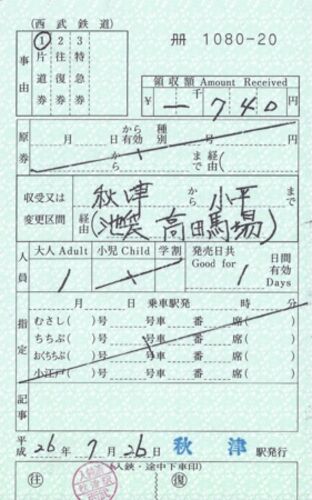 (西武鉄道)
冊 1080-20
事由
① 片道券
2 往復券
3 特急券
領収額 Amount Received
¥ 一千 740 円
原券
月 日から有効 種別 号 円
から まで 経由(
収受又は変更区間
秋津 から 小平 まで
経由(池袋 高田馬場)
人員
大人 Adult 小児 Child 学割 発売日共 Good for
1 1 日間有効 Days
指定
月 日 乗車駅発 時 分
むさし( )号 号車 番 席( )
ちちぶ( )号 号車 番 席( )
おくちちぶ( )号 号車 番 席( )
小江戸( )号 号車 番 席( )
記事
平成 26 年 7 月 26 日 秋津 駅発行
(入鋏・途中下車印)
往 復